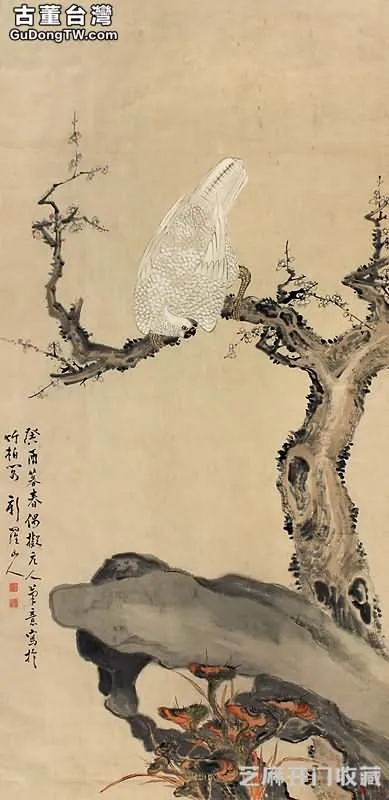 古董台灣
GuDongTW.com
癸酉暮春偶擬元人筆意寫於
竹柏 新羅山人
芝麻开门收藏